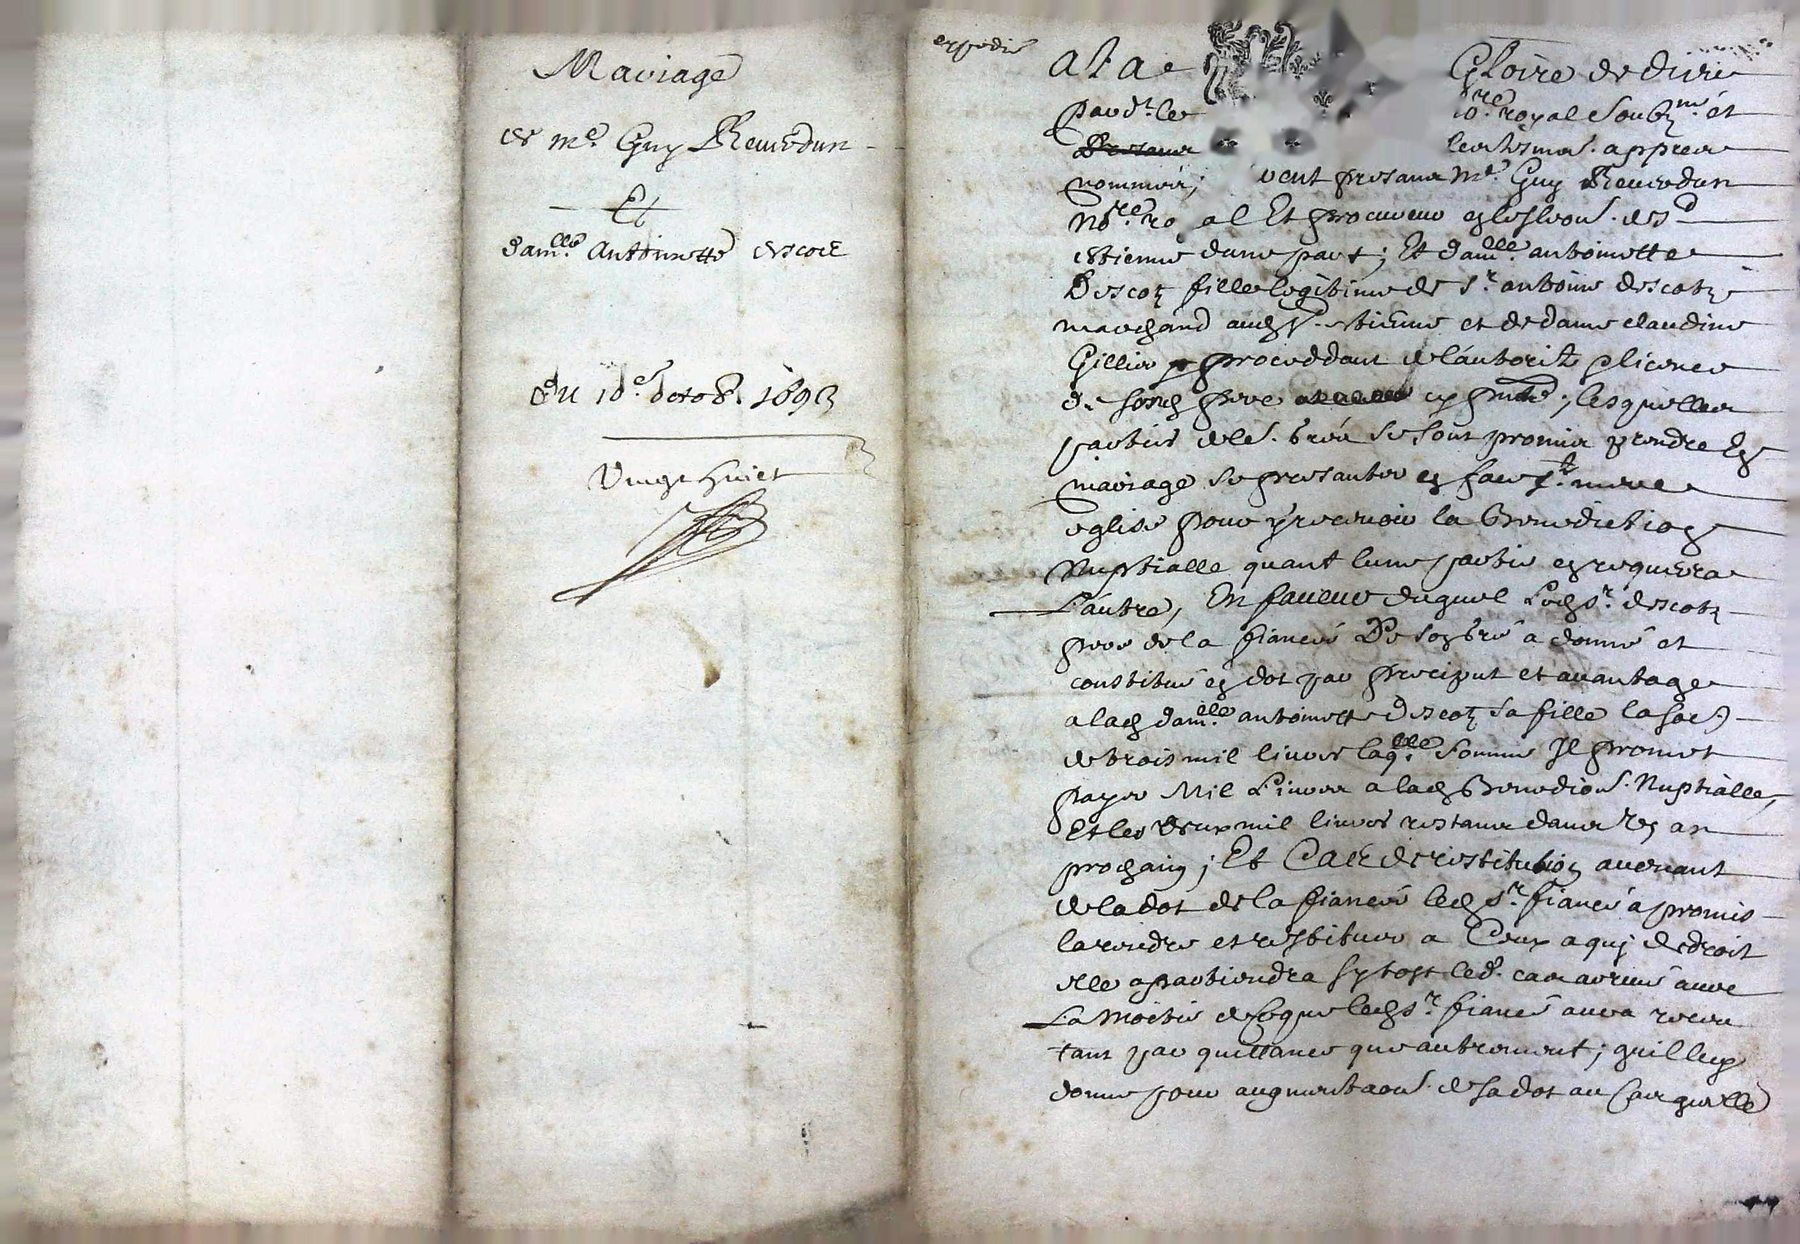 Mariage
de me. Guy Reurodun
Et
damlle. Antoinette descot
du 10e. octob. 1693
Vingt huict
expedié
a la Gloire de dieu
pardt. les re royal soubz. et
les tesmos. appres
nommés; present me. Guy Reurodun
nore. ro al Et procureur de sd.
estienne dune part; Et damlle. antoinette
Descotz fille legitime de sr. antoine descotz
marchand aud st. estienne et de dame claudine
Gillier procedant de l'authorité licence
de sond pere cy ; lesquelles
parties de se sont promis prendre en
mariage se presanter en face ste. mere
eglise pour y recevoir la Benediction
Nuptialle quant lune partie en requerra
L'autre, En faveur duquel Led sr. descotz
pere de la fiancée De son gré a donné et
constitué en dot par preciput et avantage
a lad damlle. antoinette Descotz sa fille la
de trois mil livres laqlle. somme Il promet
payer Mil Livres a lad Benedion. Nuptialle,
Et les deux mil livres restans dans un an
prochain; Et Cas de restitution advenant
de la dot de la fiancée led sr. fiancé a promis
la rendre et restituer a Ceux a qui de droit
elle apartiendra sytost led. cas arrivé avec
La Moitié de ce que led sr. fiancé aura receu
tant par quittance que autrement; qu'il luy
donne pour augmentaon. de sa dot au Cas quelle